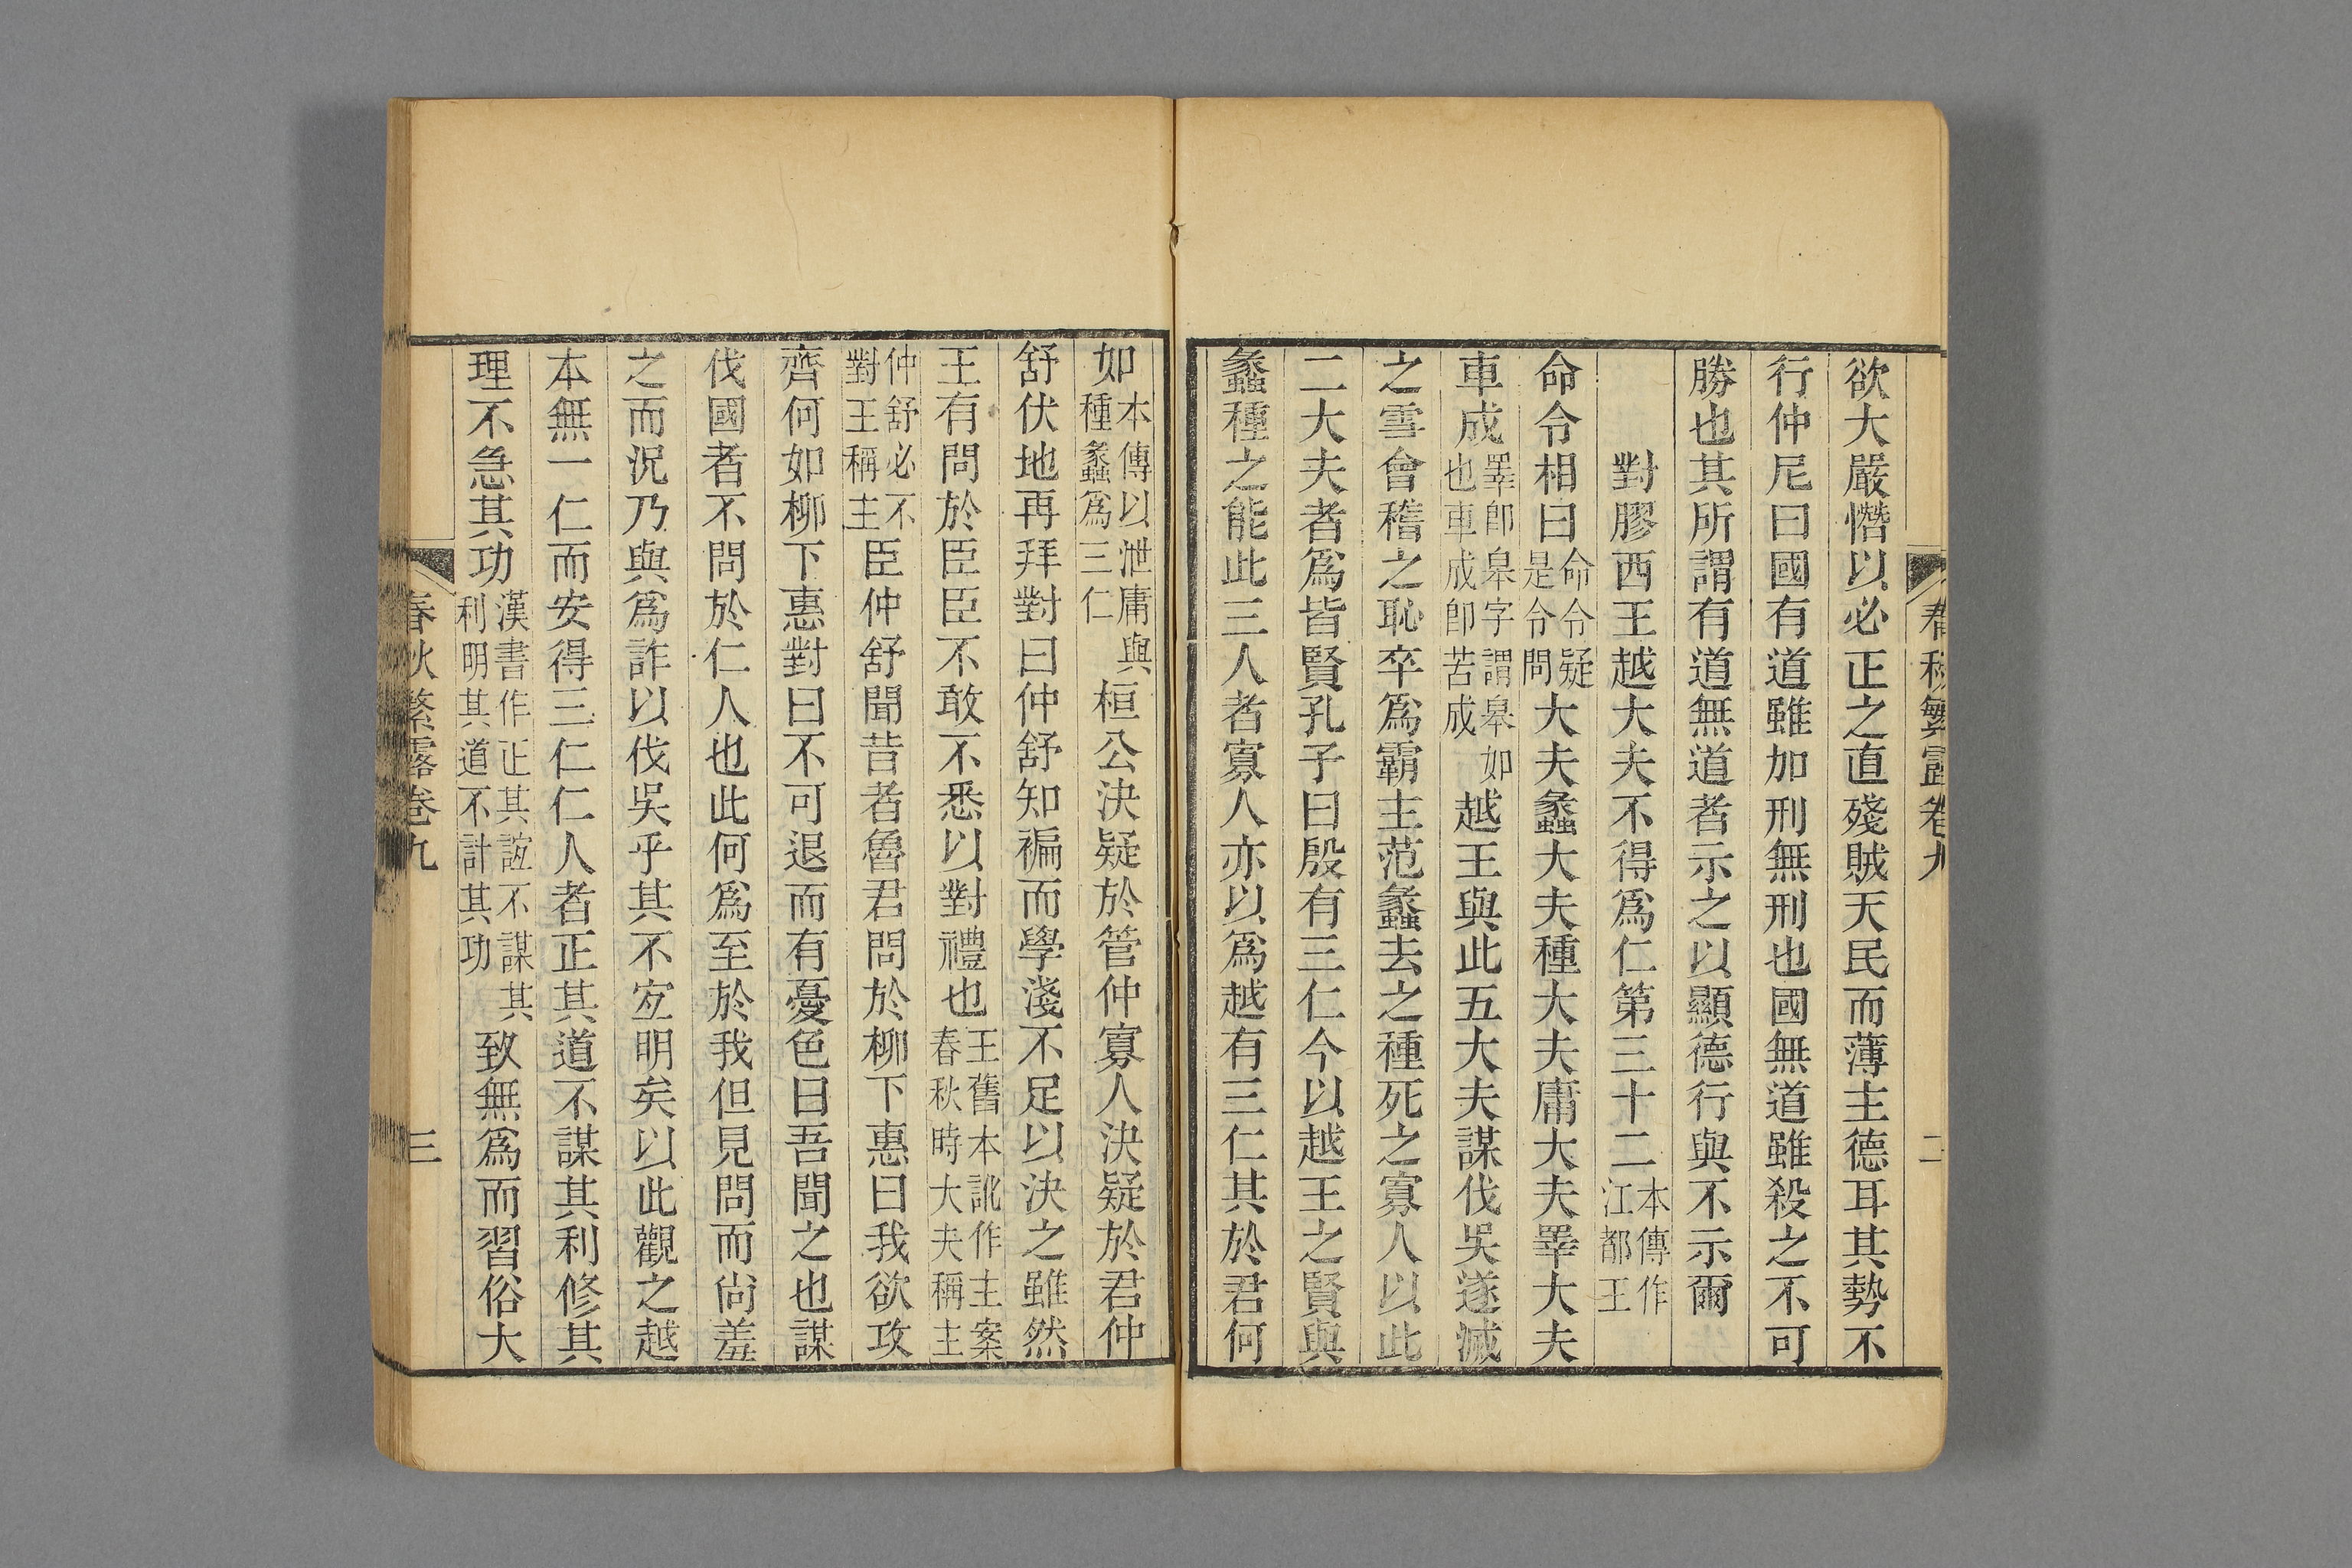 春秋繁露卷九
二
欲大嚴憯以必正之直殘賊天民而薄主德耳其勢不
行仲尼曰國有道雖加刑無刑也國無道雖殺之不可
勝也其所謂有道無道者示之以顯德行與不示爾
對膠西王越大夫不得爲仁第三十二本傳作江都王
命令相曰命令疑是令問大夫蠡大夫種大夫庸大夫睪大夫
車成睪卽皋字謂皋如也車成卽苦成越王與此五大夫謀伐吳遂滅
之雪會稽之恥卒爲霸主范蠡去之種死之寡人以此
二大夫者爲皆賢孔子曰殷有三仁今以越王之賢與
蠡種之能此三人者寡人亦以爲越有三仁其於君何
如本傳以泄庸與種蠡爲三仁桓公決疑於管仲寡人決疑於君仲
舒伏地再拜對曰仲舒知褊而學淺不足以決之雖然
王有問於臣臣不敢不悉以對禮也王舊本訛作主案春秋時大夫稱主
仲舒必不對王稱主臣仲舒聞昔者魯君問於柳下惠曰我欲攻
齊何如柳下惠對曰不可退而有憂色曰吾聞之也謀
伐國者不問於仁人也此何爲至於我但見問而尙羞
之而況乃與爲詐以伐吳乎其不宐明矣以此觀之越
本無一仁而安得三仁仁人者正其道不謀其利修其
理不急其功漢書作正其誼不謀其利明其道不計其功致無爲而習俗大
春秋繁露卷九
三